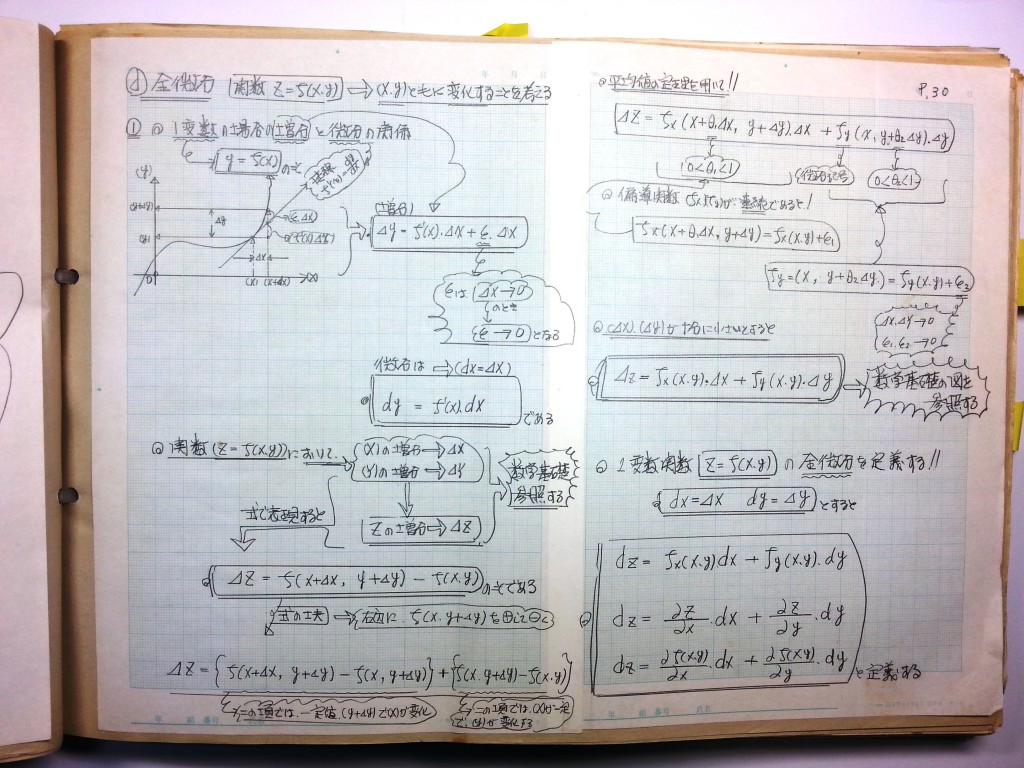 全微分 関数 z=f(x.y) → (x.y)ともに変化することを考える
① ◎ 1変数の場合の増分と微分の関係
y = f(x) のとき
(増分)
Δy = f'(x).Δx + ε.Δx
εは Δx→0
のとき
(ε→0)となる
微分は→(dx=Δx)
dy = f'(x).dx
である
◎ 関数(z=f(x.y))において、
(x)の増分→Δx
(y)の増分→Δy
数学基礎
参照する
zの増分→Δz
式で表現すると
Δz = f(x+Δx, y+Δy) - f(x.y) のことである
式の工夫 → 右辺に f(x.y+Δy)を⊕して⊖く
Δz = {f(x+Δx, y+Δy) - f(x, y+Δy)} + {f(x.y+Δy) - f(x.y)}
この項では、一定値(y+Δy)で(x)が変化
この項では(x)が一定
で(y)が変化する
P.30
◎ 平均値の定理を用いて!!
Δz = fx(x+θ1Δx, y+Δy).Δx + fy(x, y+θ2Δy).Δy
(0<θ1<1)
微分記号
(0<θ2<1)
◎ 偏導関数 (fx)(fy)が連続であると!
fx(x+θ1Δx, y+Δy) = fx(x.y)+ε1
fy=(x, y+θ2Δy) = fy(x.y)+ε2
Δx.Δy→0
ε1.ε2→0
◎ (Δx).(Δy)が十分に小さいとすると
Δz = fx(x.y).Δx + fy(x.y).Δy
数学基礎の図を
参照する
◎ 2変数関数 z=f(x.y) の全微分を定義する!!
dx=Δx dy=Δy とすると
dz = fx(x.y)dx + fy(x.y).dy
dz = ∂z/∂x .dx + ∂z/∂y .dy
dz = ∂f(x.y)/∂x .dx + ∂f(x.y)/∂y .dy と定義する